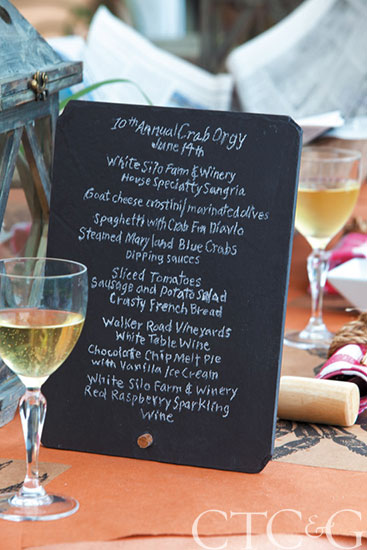 10th Annual Crab Orgy
June 14th
White Silo Farm & Winery
House Specialty Sangria
Goat cheese crostini/marinated olives
Spaghetti with Crab Fra Diavlo
Steamed Maryland Blue Crabs
Dipping sauces
Sliced Tomatoes
Sausage and Potato Salad
Crasty French Bread
Walker Road Vineyards
White Table Wine
Chocolate Chip Melt Pie
with Vanilla Ice Cream
White Silo Farm & Winery
Red Raspberry Sparkling
Wine
CTC&G